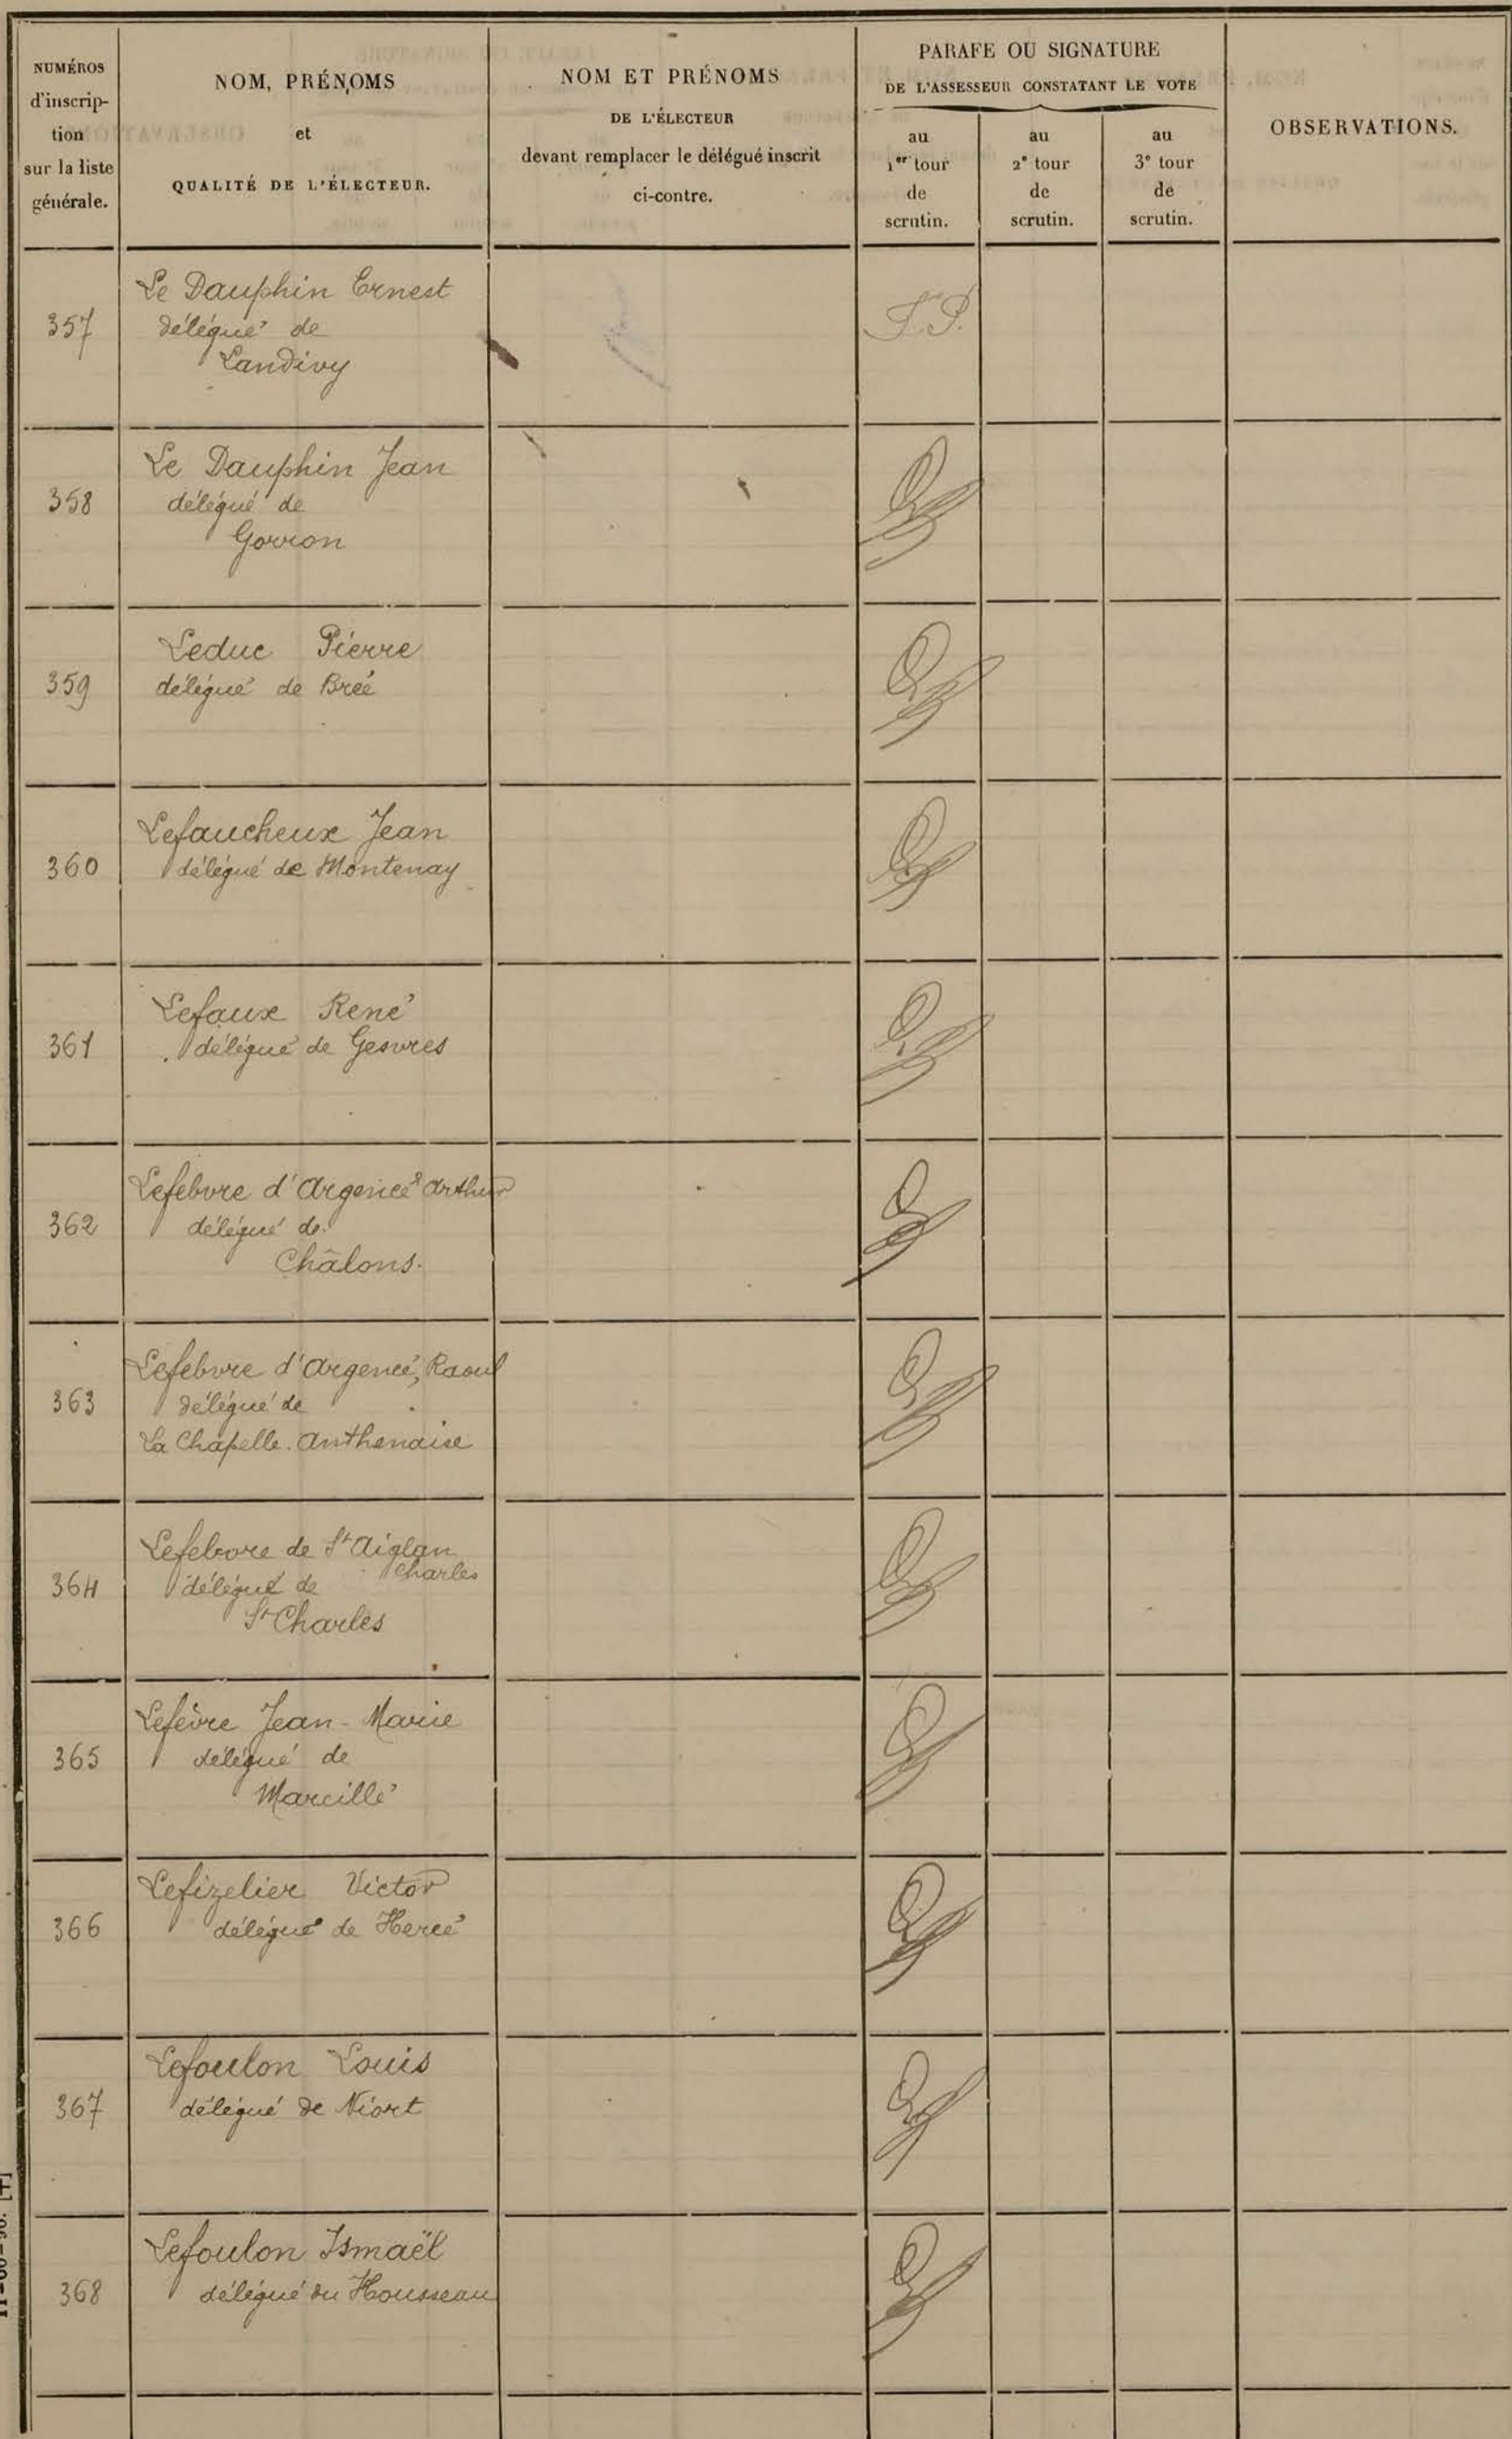 NUMÉROS
d'inscrip-
tion
sur la liste
générale.
NOM, PRÉNOMS
et
QUALITÉ DE L'ÉLECTEUR.
NOM ET PRÉNOMS
DE L'ÉLECTEUR
devant remplacer le délégué inscrit
ci-contre.
PARAFE OU SIGNATURE
DE L'ASSESSEUR CONSTATANT LE VOTE
au
1er tour
de
scrutin.
au
2e tour
de
scrutin.
au
3e tour
de
scrutin.
OBSERVATIONS.
357
Le Dauphin Ernest
délégué de
Landivy
358
Le Dauphin Jean
délégué de
Gorron
359
Leduc Pierre
délégué de Brée
360
Lefaucheux Jean
délégué de Montenay
361
Lefaux René
délégué de Gesvres
362
Lefebvre d'Argencé Arthur
délégué de
Châlons.
363
Lefebvre d'Argencé, Raoul
délégué de
La Chapelle. Anthenaise
364
Lefebvre de St Aiglan
Charles
délégué de
St Charles
365
Lefèvre Jean-Marie
délégué de
Marcillé
366
Lefizelier Victor
délégué de Hercé
367
Lefoulon Louis
délégué de Niort
368
Lefoulon Ismaël
délégué du Housseau